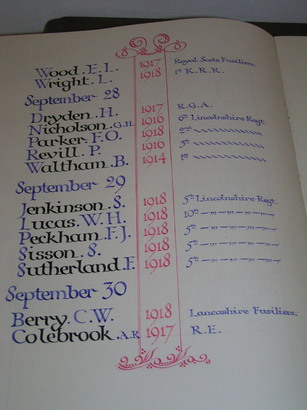 Wood. E. L. 1917 Royal Scots Fusiliers.
Wright. L. 1918 1st K.R.R.
September 28
Dryden. H. 1917 R.G.A.
Nicholson. G.H. 1916 6th Lincolnshire Regt.
Parker. F.O. 1918 2nd
Revill. P. 1916 5th
Waltham. B. 1914 1st
September 29
Jenkinson. S. 1918 5th Lincolnshire Regt.
Lucas. W. H. 1918 10th — „ — „ — „ —
Peckham. F.J. 1918 5th — „ — „ — „ —
Sisson. S. 1918 5th — „ — „ — „ —
Sutherland. F. 1918 5th — „ — „ — „ —
September 30
Berry. C.W. 1918 Lancashire Fusiliers.
Colebrook. A.R. 1917 R.E.